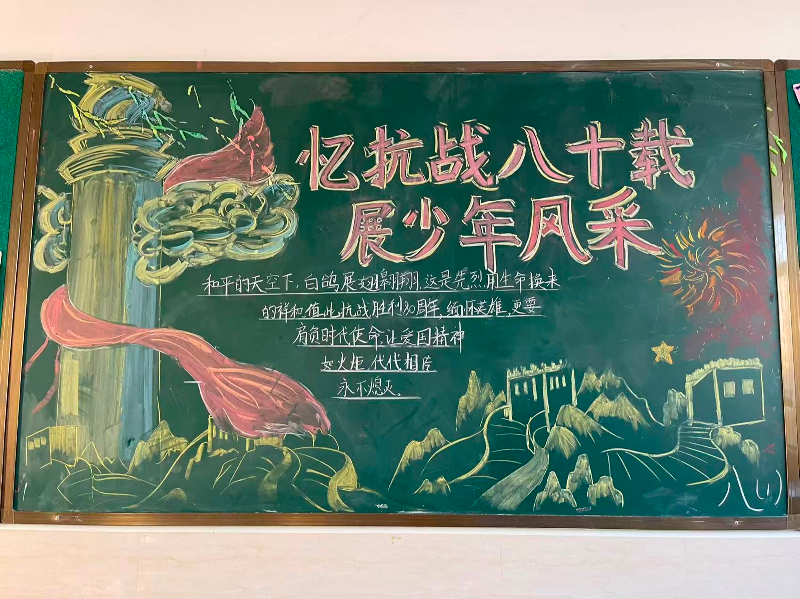 忆抗战八十载
展少年风采
和平的天空下,白鸽展翅翱翔,这是先烈用生命换来
的祥和,值此抗战胜利80周年,缅怀英雄,更要
肩负时代使命,让爱国精神
如火炬,代代相传
永不熄灭。
八(1)